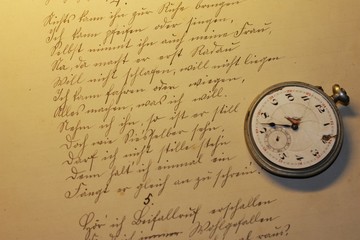 Nichts kann ihn zur Ruhe bringen
Ich kann pfeifen oder singen,
Selbst nimmt ihn auch meine Frau,
Na, da macht er erst Radau
Will nicht schlafen, will nicht liegen
Ich kann fahren oder wiegen,
Alles machen, was ich will.
Nehm ich ihn, so ist er still
Doch wie Reiseller sehn.
Darf ich nicht stille stehn
Denn halt ich einmal ein
Fängt er gleich an zu schrein.
5.
Hör ich Beifallruf erschallen
Wohlgefallen